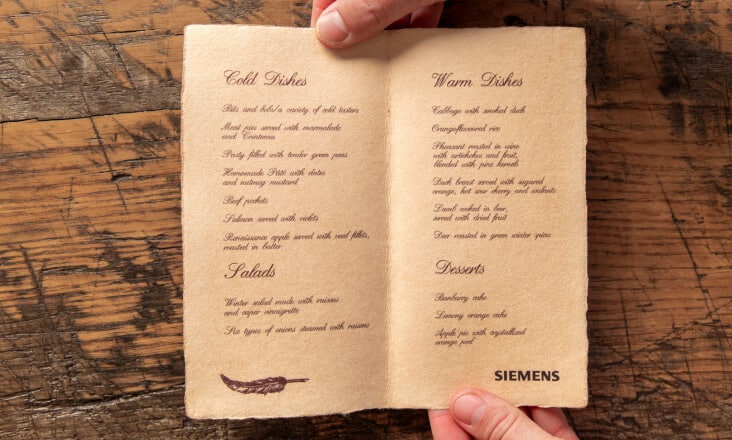 Cold Dishes
Bits and bobs/a variety of cold tasters
Meat pies served with marmalade
and Cointreau
Pasty filled with tender green peas
Homemade Pâté with dates
and nutmeg mustard
Beef pockets
Salmon served with violets
Renaissance apple served with veal fillets,
roasted in batter
Salads
Winter salad made with raisens
and caper vinaigrette
Six types of onions steamed with raisens
Warm Dishes
Cabbage with smoked duck
Orangeflavoured rice
Pheasant roasted in wine
with artichokes and fruit,
blended with pine kernels
Duck breast served with sugared
orange, hot sour cherry and walnuts
Lamb cooked in beer,
served with dried fruit
Deer roasted in green winter spices
Desserts
Banburry cake
Lemony orange cake
Apple pie with crystallized
orange peel
SIEMENS